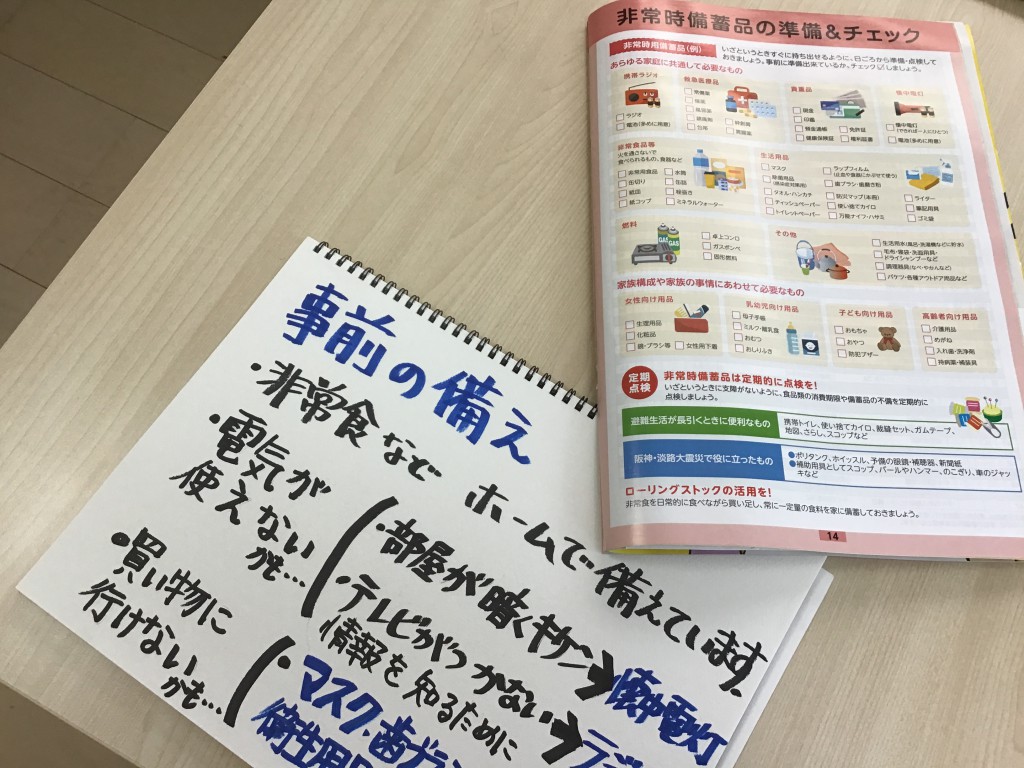 非常時備蓄品の準備&チェック
非常時用備蓄品(例)
いざというときすぐに持ち出せるように、日ごろから準備・点検して
おきましょう。事前に準備出来ているか、チェック☑しましょう。
あらゆる家庭に共通して必要なもの
携帯ラジオ
□ラジオ
□電池(多めに用意)
救急医療品
□常備薬
□包帯
□絆創膏
貴重品
□現金
□印鑑
□預金通帳
□健康保険証
□免許証
□権利証書
懐中電灯
□懐中電灯
(できれば一人にひとつ)
□電池(多めに用意)
非常食品等
火を通さないで
食べられるもの、食器など
□非常用食品
□缶切り
□紙皿
□紙コップ
□水筒
□缶詰
□栓抜き
□ミネラルウォーター
生活用品
□マスク
□除菌用品
(感染症対策用)
□タオル・ハンカチ
□ティッシュペーパー
□トイレットペーパー
□ラップフィルム
(止血や食器にかぶせて使う)
□歯ブラシ・歯磨き粉
□防災マップ(本冊)
□使い捨てカイロ
□万能ナイフ・ハサミ
□ライター
□筆記用具
□ゴミ袋
燃料
GAS
GAS
□卓上コンロ
□ガスボンベ
□固形燃料
その他
□生活用水(風呂・洗濯機などに貯水)
□毛布・寝袋・洗面用具・
ドライシャンプーなど
□調理器具(なべ・やかんなど)
□バケツ・各種アウトドア用品など
家族構成や家族の事情にあわせて必要なもの
女性向け用品
□生理用品
□化粧品
□鏡・ブラシ等
□女性用下着
乳幼児向け用品
□母子手帳
□ミルク・離乳食
□おむつ
□おしりふき
子ども向け用品
□おもちゃ
□おやつ
□防犯ブザー
高齢者向け用品
□介護用品
□めがね
□入れ歯・洗浄剤
□持病薬・補装具
定期
点検
非常時備蓄品は定期的に点検を!
いざというときに支障がないように、食品類の消費期限や備蓄品の不備を定期的に
点検しましょう。
避難生活が長引くときに便利なもの
携帯トイレ、使い捨てカイロ、裁縫セット、ガムテープ、
地図、さらし、スコップなど
阪神・淡路大震災で役に立ったもの
●ポリタンク、ホイッスル、予備の眼鏡・補聴器、新聞紙
●補助用具としてスコップ、バールやハンマー、のこぎり、車のジャッ
キなど
ローリングストックの活用を!
非常食を日常的に食べながら買い足し、常に一定量の食料を家に備蓄しておきましょう。
14
事前の備え
・非常食など ホームで備えています。
・電気が
使えない
かも…
・部屋が暗くキケン→懐中電灯
・テレビがつかない→ラジ
情報を知るために
・買い物に
行けない
かも…
・マスク、歯ブラ
衛生用